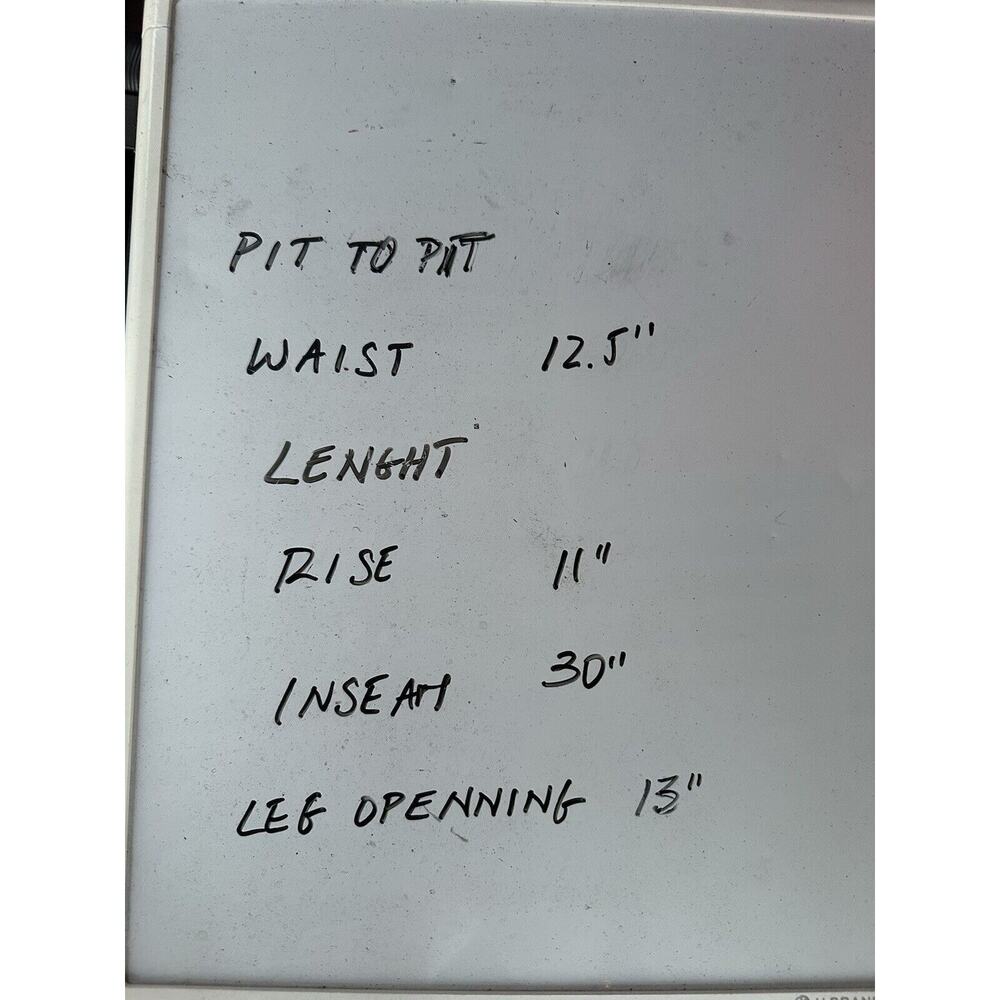 PIT TO PIT
WAIST 12.5"
LENGHT
RISE 11"
INSEAM 30"
LEG OPENNING 13"